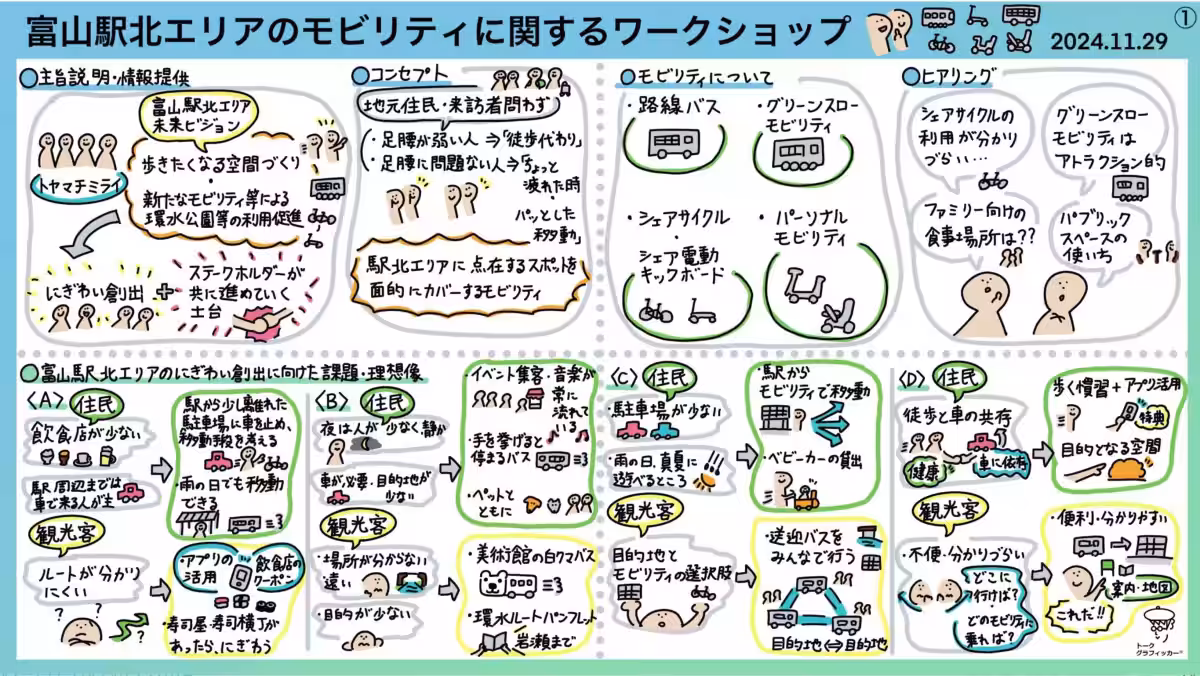 富山駅北エリアのモビリティに関するワークショップ
①
2024.11.29
主旨説明・情報提供
富山駅北エリア
未来ビジョン
トヤマチミライ
歩きたくなる空間づくり
・
新たなモビリティ等による
環水公園等の利用促進
にぎわい創出
+
ステークホルダーが
共に進めていく
土台
コンセプト
地元住民・来訪者問わず
・足腰が弱い人⇒「徒歩代わり」
・足腰に問題ない人⇒「ちょっと
疲れた時
・
パッとした
移動」
駅北エリアに点在するスポットを
面的にカバーするモビリティ
モビリティについて
・路線バス
・グリーンスロー
モビリティ
・シェアサイクル
・
シェア電動
キックボード
・パーソナル
モビリティ
ヒアリング
シェアサイクルの
利用が分かり
づらい…
グリーンスロー
モビリティは
アトラクション的
ファミリー向けの
食事場所は??
パブリック
スペースの
使いち
富山駅北エリアのにぎわい創出に向けた課題・理想像
〈A〉
住民
飲食店が少ない
駅周辺までは
車で来る人が主
駅から少し離れた
駐車場に車を止め、
移動手段を考える
・雨の日でも移動
できる
観光客
ルートが分かり
にくい
? ? ?
・アプリの
活用
飲食店の
クーポン
・寿司屋・寿司横丁が
あったら、にぎわう
〈B〉
住民
夜は人が少なく、静か
車が必要・目的地が
少ない
・イベント集客・音楽が
常に
流れて
いる
・手を挙げると
停まるバス
・ペットと
ともに
観光客
・場所が分からない
遠い
・目的が少ない
・美術館の白クマバス
・環水ルートパンフレット
岩瀬まで
〈C〉
住民
・駐車場が少ない
・雨の日、真夏に
遊べるところ
・駅から
モビリティで移動
・ベビーカーの貸出
観光客
目的地と
モビリティの選択肢
・送迎バスを
みんなで行う
目的地⇔目的地
〈D〉
住民
徒歩と車の共存
健康
車に依存
歩く慣習+アプリ活用
特典
目的となる空間
観光客
・不便・分かりづらい
どこに
行けば?
・
どのモビリティに
乗れば?
・便利・分かりやすい
案内・地図
これだ!!
トーク
グラフィッカー®